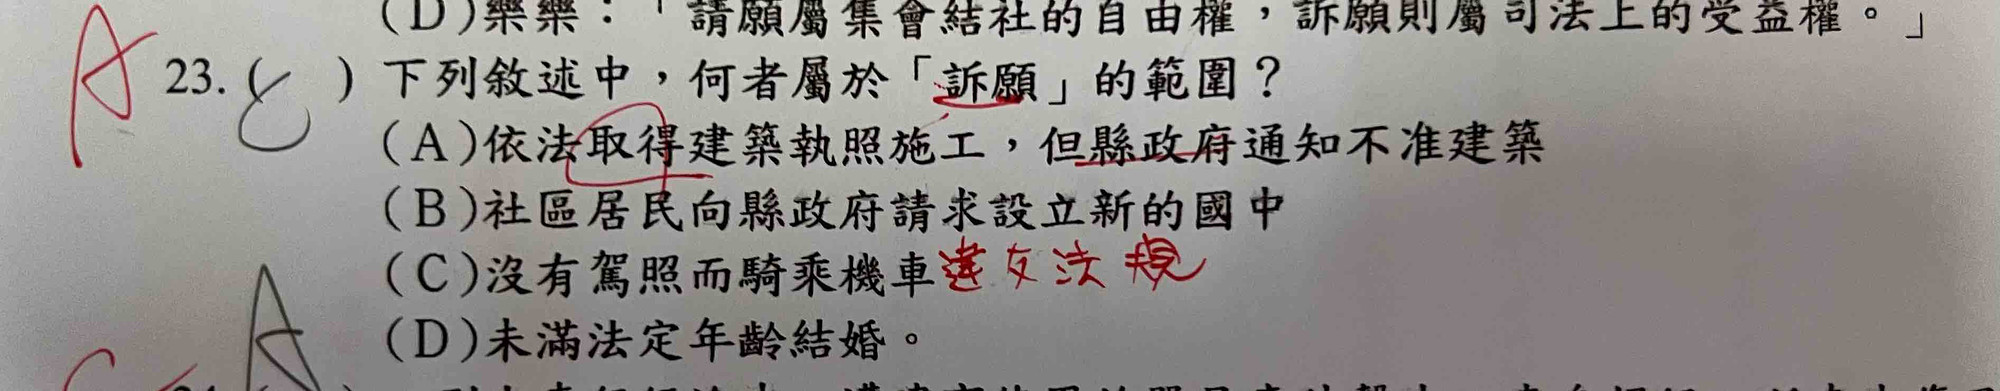 (D)樂樂：「請願屬集會結社的自由權，訴願則屬司法上的受益權。」
A 23. ( C ) 下列敘述中，何者屬於「訴願」的範圍？
(A)依法取得建築執照施工，但縣政府通知不准建築
(B)社區居民向縣政府請求設立新的國中
(C)沒有駕照而騎乘機車違反法規
(D)未滿法定年齡結婚。
A